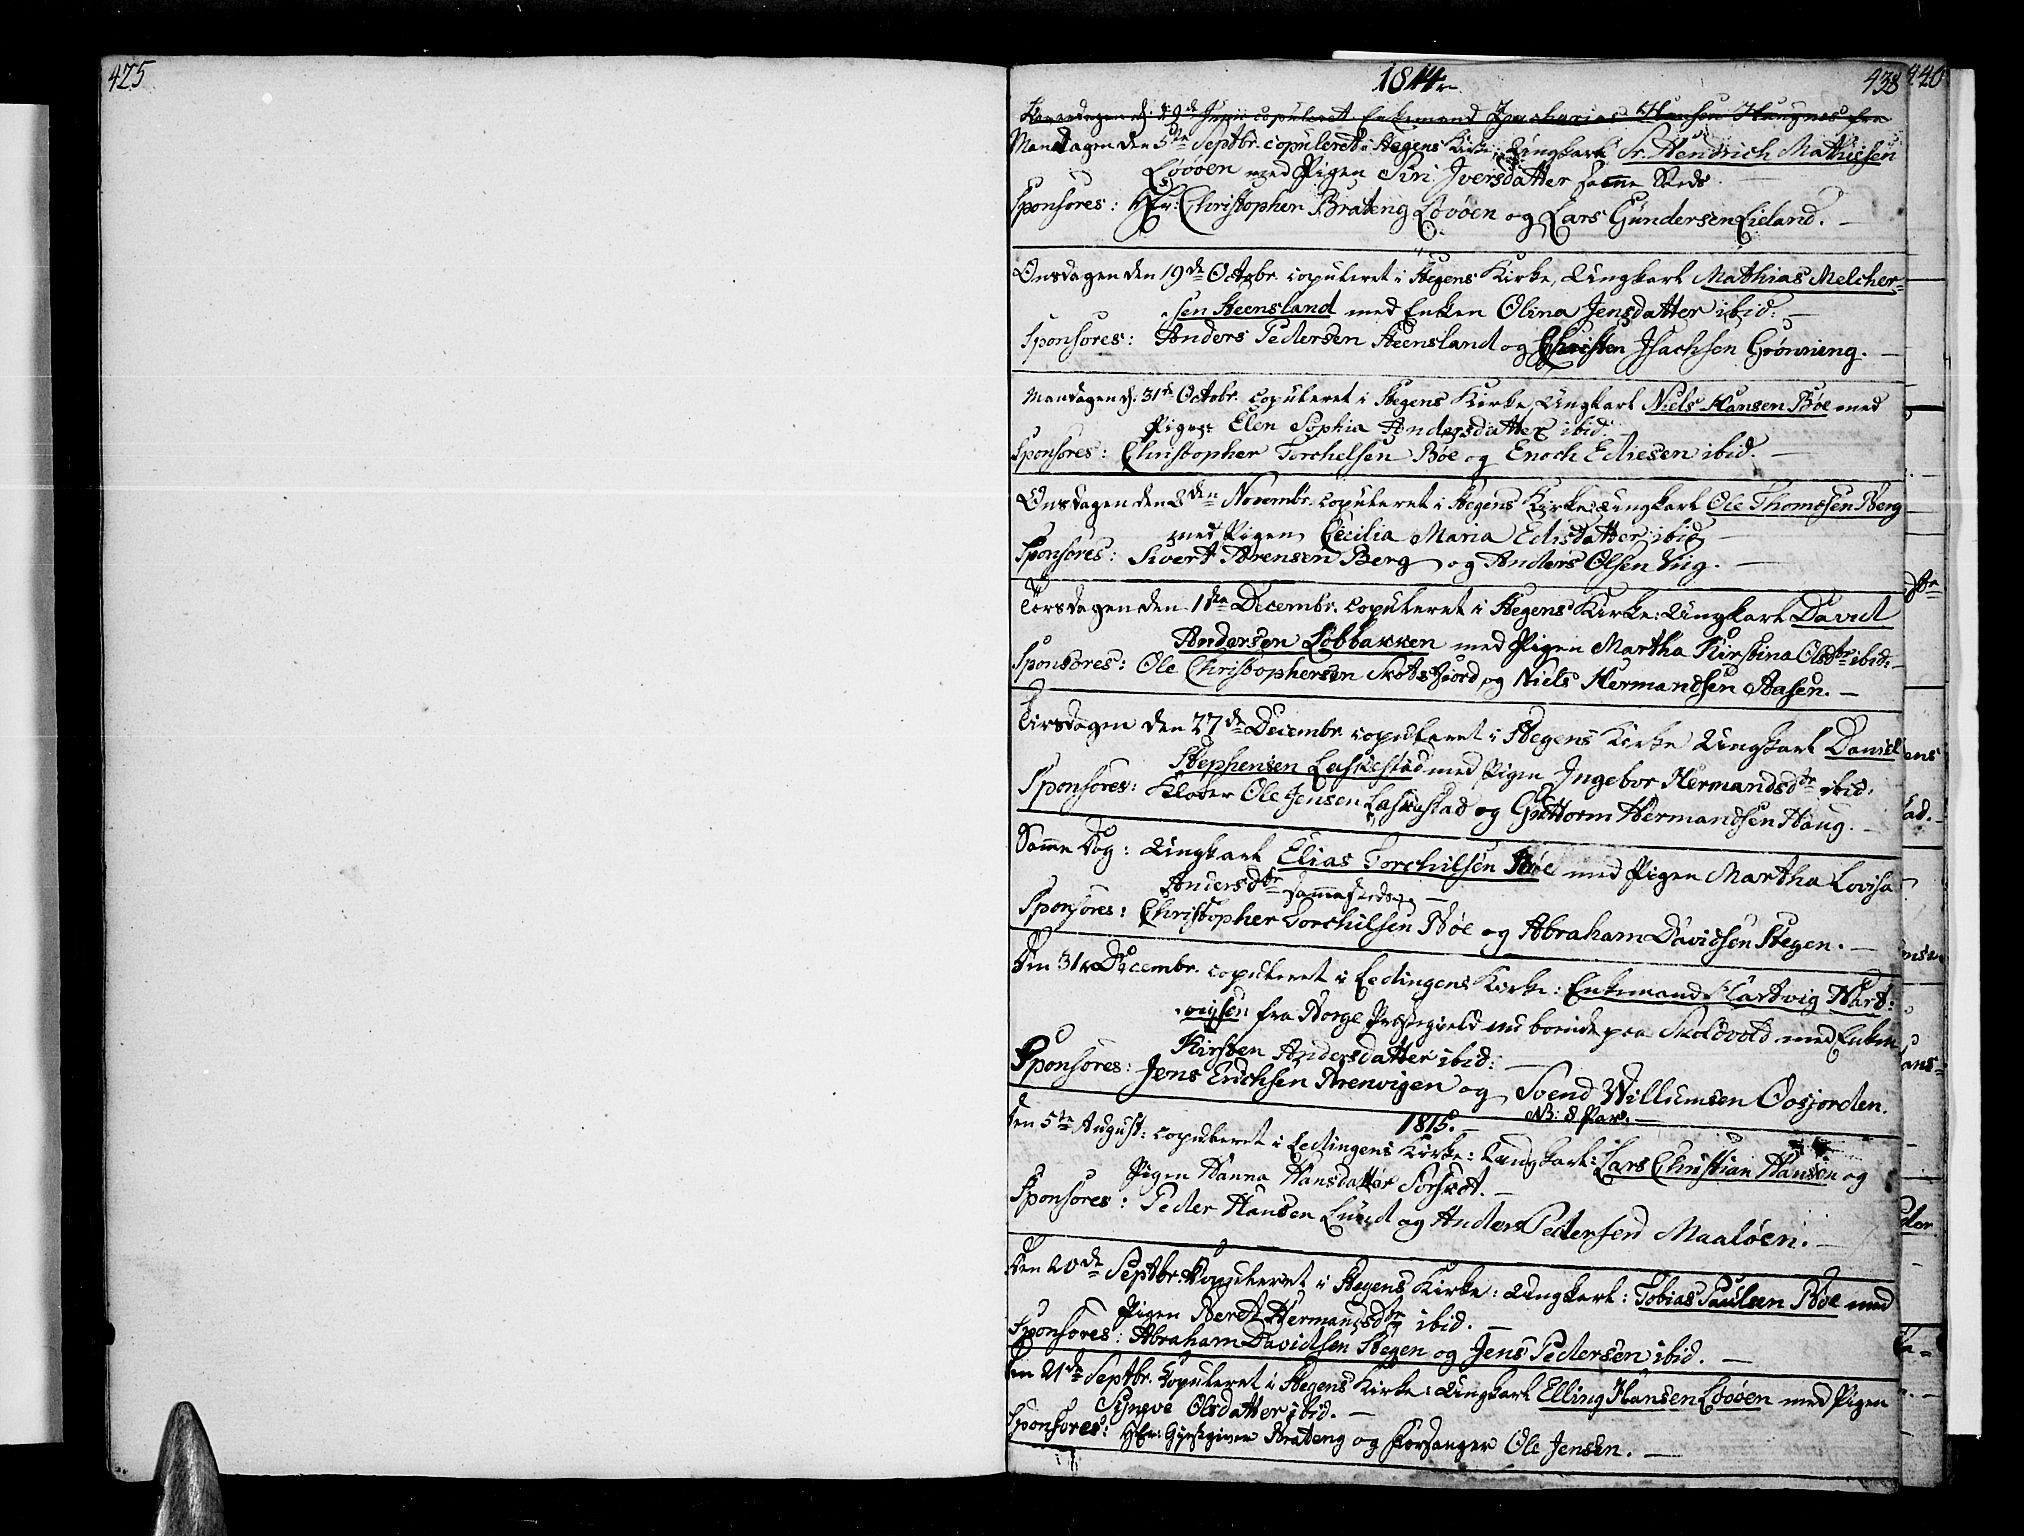 425
1814
438
440
Mandagen den 5te Septbr. copuleret i Stegens Kirke: Ungkarl Sr. Hendrich Mathiesen
Løvøen med Pigen Siri Iversdatter samme Steds
Sponsores: Hr: Christopher Brateng Løvøen og Lars Gundersen Lieland. —
Onsdagen den 19de Octobr. copuleret i Stegens Kirke, Ungkarl Mathias Melcher-
sen Steensland med Enken Olina Jensdatter ibid: —
Sponsores: Anders Pedersen Steensland og Christen Isachsen Grønning. —
Mandagen d: 31te Octobr. copuleret i Stegens Kirke Ungkarl Niels Hansen Bøe med
Pigen Elen Sophia Andersdatter ibid.
Sponsores: Christopher Torchelsen Bøe og Enoch Ediesen ibid. —
Onsdagen den 8den Novembr. copuleret i Stegens Kirke: Ungkarl Ole Thomesen Berg
med Pigen Cecilia Maria Edisdatter ibid —
Sponsores: Sivert Arensen Berg og Anders Olsen Viig. —
Torsdagen den 1ste Decembr. copuleret i Stegens Kirke: Ungkarl David
Andersen Løbbakken med Pigen Martha Kirstina Olsdtr ibid: —
Sponsores: Ole Christophersen Skotsfiord og Niels Hermandsen Aasen. —
Tirsdagen den 27de Decembr. copuleret i Stegens Kirke Ungkarl Daniel
Stephensen Laskestad med Pigen Ingebor Hermandsdtr ibid.
Sponsores: Klokker Ole Jensen Laskestad og Guttorm Hermandsen Haug. —
Samme Dag: Ungkarl Elias Torchilsen Bøe med Pigen Martha Lovisa
Andersdtr sammesteds —
Sponsores: Christopher Torchilsen Bøe og Abraham Davidsen Stegen. —
Den 31te Decembr. copuleret i Lødingens Kirke: Enkemand Hartvig Hart-
vigsen fra Borge Præstegield nu boende paa Skoldvold med Enken
Kirsten Andersdatter ibid: —
Sponsores: Jens Erichsen Brenvigen og Svend Willumsen Oosjorden.
NB: 8 Par. —
1815. —
Den 5te August: copuleret i Lødingens Kirke: Ungkarl: Lars Christian Hansen og
Pigen Hanna Hansdatter Sørskot. —
Sponsores: Peder Hansen Lund og Anders Pedersen Maaløen. —
Den 20de Septbr. Copuleret i Stegens Kirke: Ungkarl: Tobias Paulsen Bøe med
Pigen Beret Hermansdtr ibid. —
Sponsores: Abraham Davidsen Stegen og Jens Pedersen ibid. —
Den 21de Septbr. Copuleret i Stegens Kirke: Ungkarl Elling Hansen Løvøen med Pigen
Syneve Olsdatter ibid. —
Sponsores: Hr: Giestgiver Brateng og Forsanger Ole Jensen. —